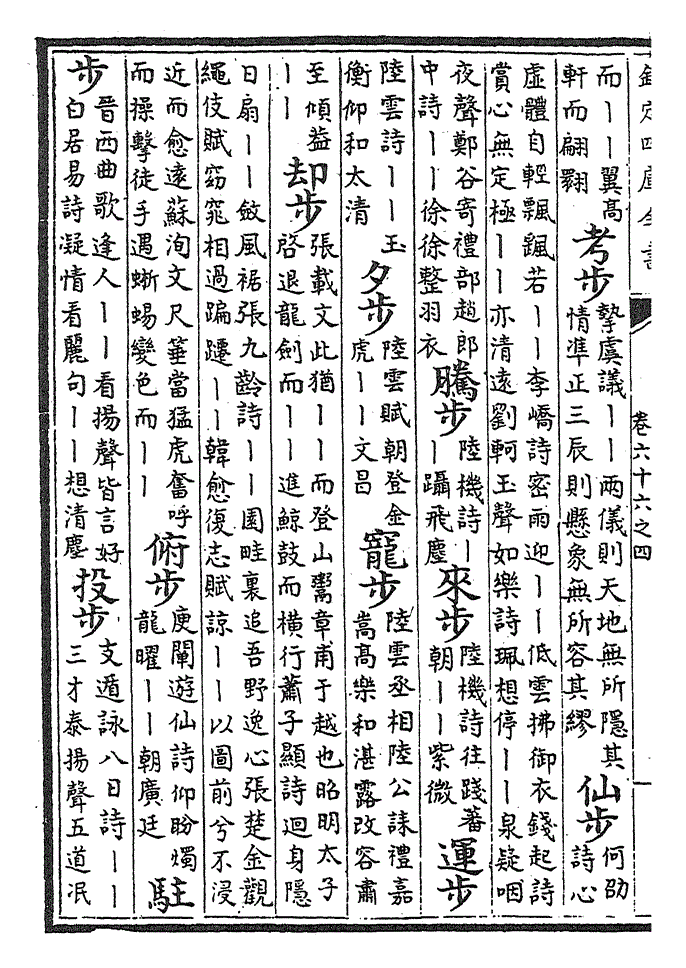 欽定四庫全書
卷六十六之四
一
而丨丨翼高
軒而翩翾
考步
摯虞議丨丨兩儀則天地無所隱其
情準正三辰則懸象無所容其繆
仙步
何劭
詩心
虛體自輕飄颻若丨丨李嶠詩密雨迎丨丨低雲拂御衣錢起詩
賞心無定極丨丨亦清遠劉軻玉聲如樂詩珮想停丨丨泉疑咽
夜聲鄭谷寄禮部趙郎
中詩丨丨徐徐整羽衣
騰步
陸機詩丨
丨躡飛塵
來步
陸機詩往踐蕃
朝丨丨紫微
運步
陸雲詩丨丨玉
衡仰和太清
夕步
陸雲賦朝登金
虎丨丨文昌
寵步
陸雲丞相陸公誄禮嘉
嵩髙樂和湛露改容肅
至傾葢
丨丨
却步
張載文此猶丨丨而登山鬻章甫于越也昭明太子
啓退龍劍而丨丨進鯨鼓而橫行蕭子顯詩迴身隱
日扇丨丨斂風裾張九齡詩丨丨園畦裏追吾野逸心張楚金觀
繩伎賦窈窕相過蹁躚丨丨韓愈復志賦諒丨丨以圖前兮不浸
近而愈遠蘇洵文尺箠當猛虎奮呼
而操擊徒手遇蜥蜴變色而丨丨
俯步
庾闡遊仙詩仰盼燭
龍曜丨丨朝廣廷
駐
步
晉西曲歌逢人丨丨看揚聲皆言好
白居易詩凝情看麗句丨丨想清塵
投步
支遁詠八日詩丨丨
三才泰揚聲五道泯